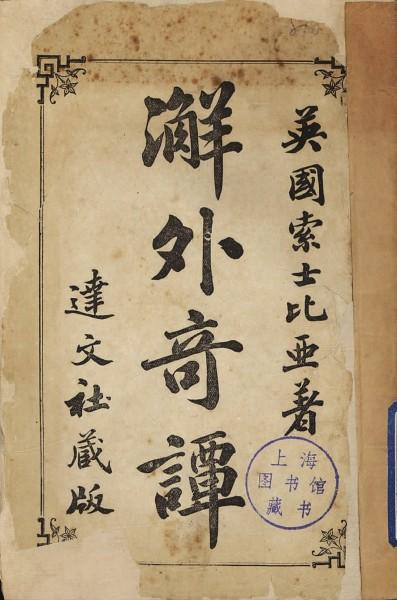 英國索士比亜著
澥外奇譚
達文社藏版
上海
图书馆
藏书